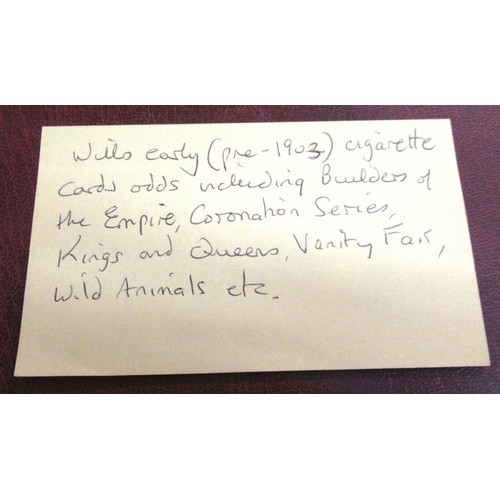 Wills early (pre-1903) cigarette
cards odds including Builders of
the Empire, Coronation Series,
Kings and Queens, Vanity Fair,
Wild Animals etc.